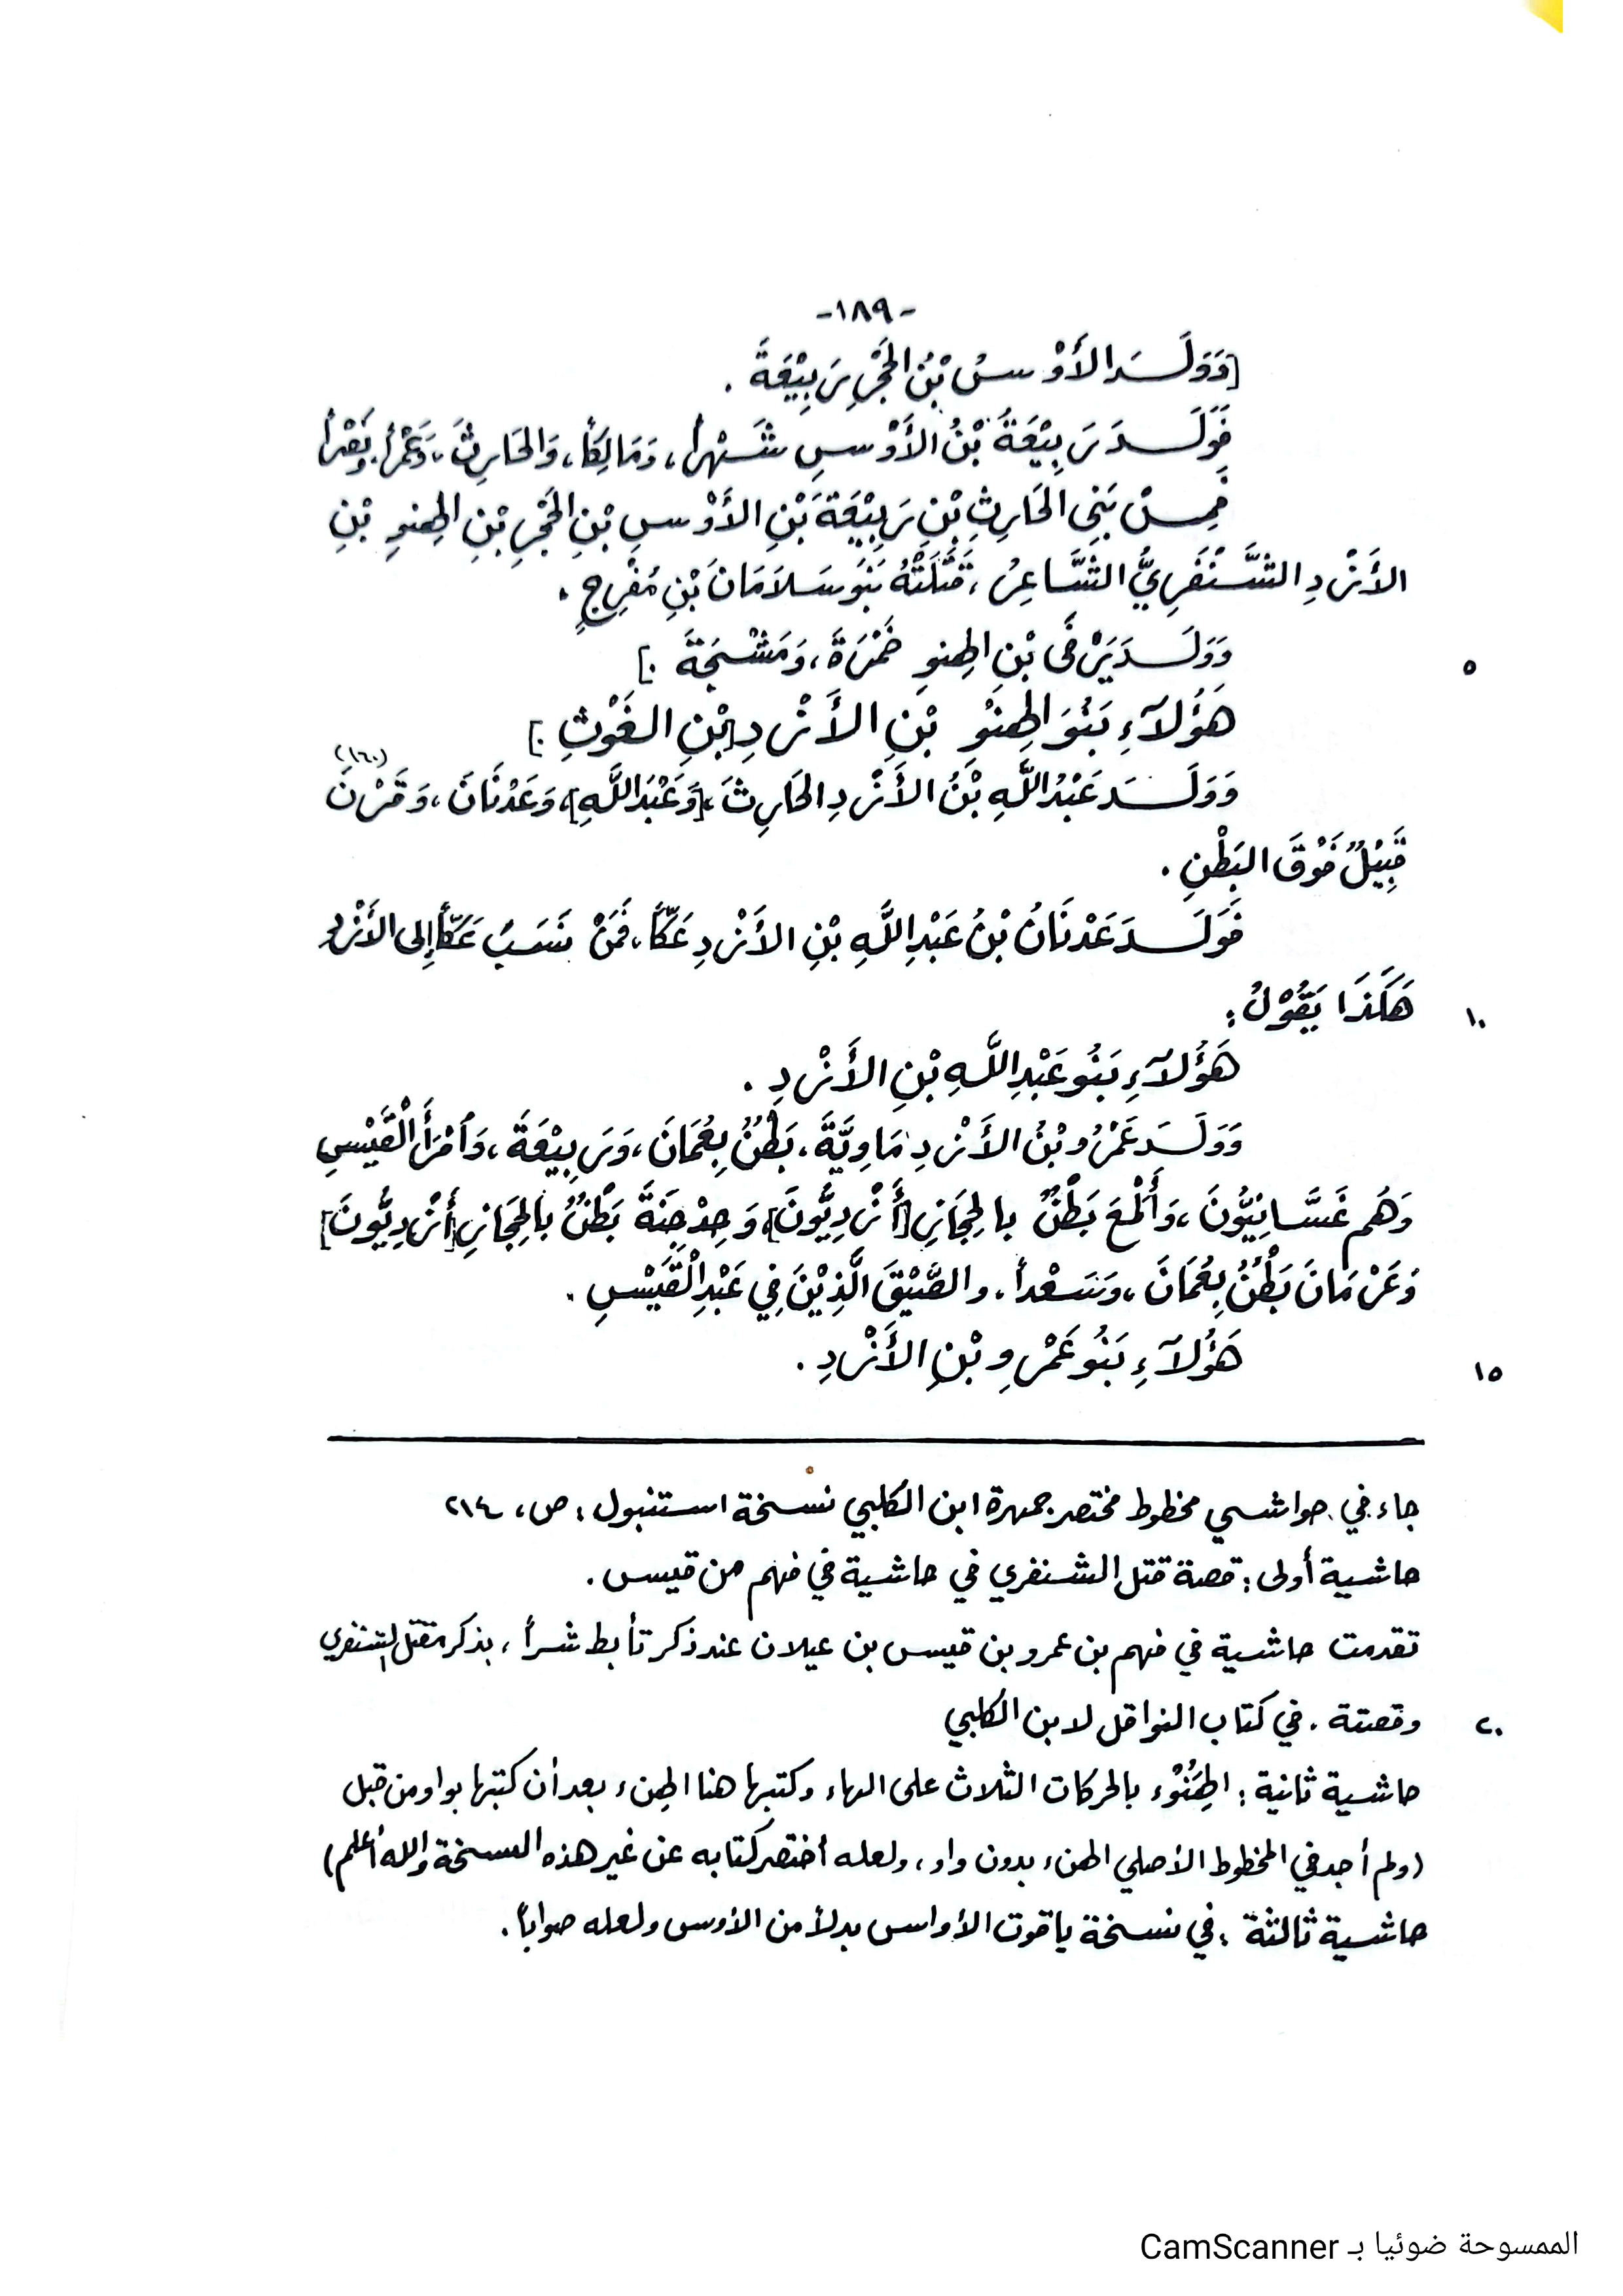 -١٨٩-
[وَوَلَـدَ الأَوْسُ بْنُ الحَجْرِ رَبِيْعَةَ .
فَوَلَـدَ رَبِيْعَةُ بْنُ الأَوْسِ شَـهْراً، وَمَالِكاً، وَالحَارِثَ، وَعَمْراً، وَنَصْراً
فَمِـنْ بَنِي الحَارِثِ بْنِ رَبِيْعَةَ بْنِ الأَوْسِ بْنِ الحَجْرِ بْنِ الهِنوِ بْنِ
الأَزْدِ الشَّنْفَرِيُّ الشَّاعِرُ، قَتَلَتْهُ بَنُو سَلاَمَانَ بْنِ مُفْرِجٍ .
٥
وَوَلَـدَ يَرْفَى بْنِ الهِنوِ ضَمْرَةَ، وَمَشْجَةَ .]
هَؤُلآءِ بَنُوَ الهِنْوِ بْنِ الأَزْدِ [بْنِ الغَوْثِ .]
وَوَلَـدَ عَبْدُ اللَّهِ بْنُ الأَزْدِ الحَارِثَ، [وَعَبْدَ اللَّهِ]، وَعَدْنَانَ، وَقَرْنَ (١٦٠)
قَبِيْلٌ فَوْقَ البَطْنِ .
فَوَلَـدَ عَدْنَانُ بْنُ عَبْدِ اللَّهِ بْنِ الأَزْدِ عَكّاً، فَمَنْ نَسَبَ عَكّاً إِلى الأَزْدِ
١٠
هَكَذَا يَقُوْلُ:
هَؤُلآءِ بَنُو عَبْدِ اللَّهِ بْنِ الأَزْدِ .
وَوَلَـدَ عَمْرُو بْنُ الأَزْدِ مَاوِيَّةَ، بَطْنٌ بِعُمَانَ، وَرَبِيْعَةَ، وَاَمْرَأَ الْقَيْسِ
وَهُم غَسَّانِيُّونَ، وَأَلْمَعَ بَطْنٌ بالحِجَازِ [أَزْدِيُّونَ]، وَحِدْجِنَةَ بَطْنٌ بالحِجَازِ [أَزْدِيُّونَ]
وَعَرْمَانَ بَطْنٌ بِعُمَانَ، وَسَعْداً، والصَّيْقَ الَّذِيْنَ فِي عَبْدِ الْقَيْسِ .
١٥
هَؤُلآءِ بَنُو عَمْرِو بْنِ الأَزْدِ .
جاء في حواشي مخطوط مختصر جمهرة ابن الكلبي نسخة استنبول: ص، ٢١٤
حاشية أولى: قصة قتل الشنفري في حاشية في فهم من قيس .
تقدمت حاشية في فهم بن عمرو بن قيس بن عيلان عند ذكر تأبط شراً، بذكر مقتل الشنفري
٢٠
وقصتة . في كتاب النواقل لابن الكلبي
حاشية ثانية: الهِنُوْء بالحركات الثلاث على الهاء وكتبها هنا الهنء بعد أن كتبها بواو من قبل
(ولم أجد في المخطوط الأصلي الهنء بدون واو، ولعله أختصر كتابه عن غير هذه النسخة والله أعلم)
حاشية ثالثة: في نسخة ياقوت الأواس بدلاً من الأوس ولعله صواباً .
الممسوحة ضوئيا بـ CamScanner